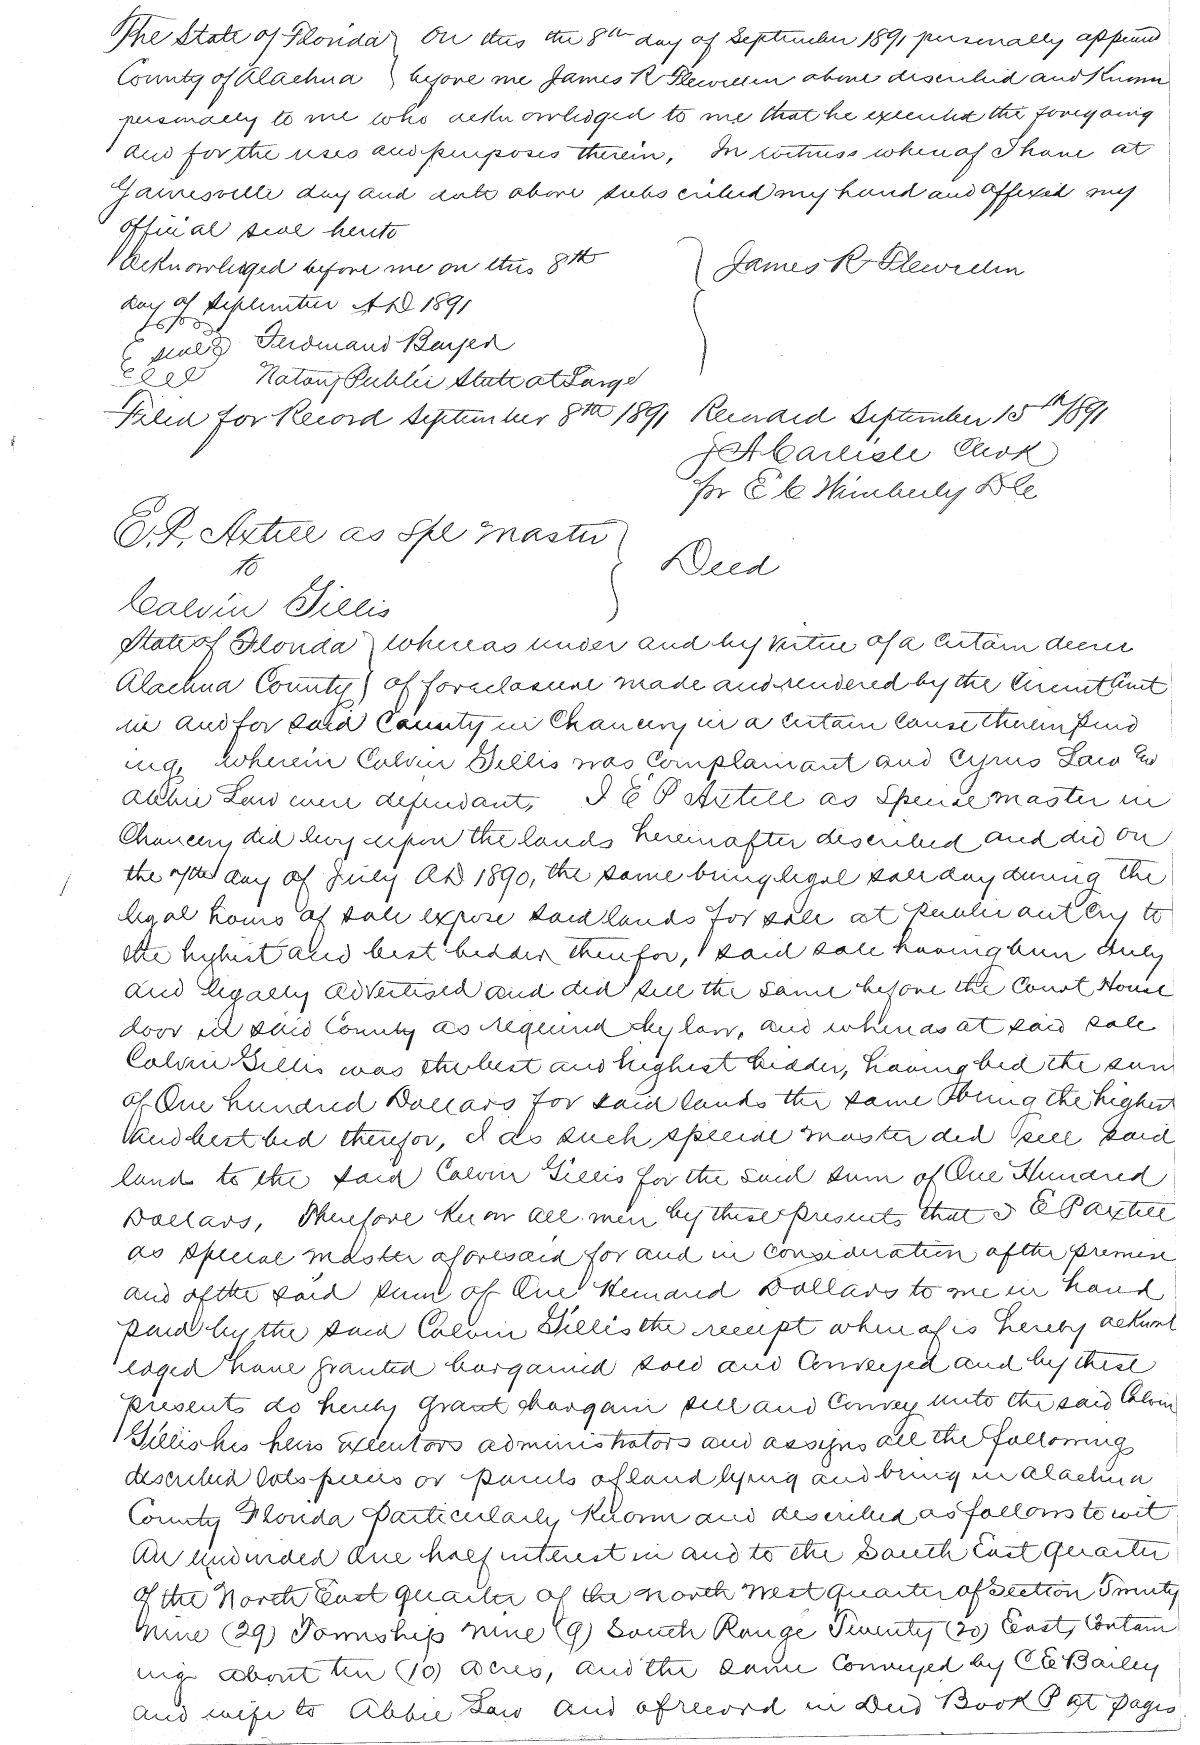 The State of Florida } On this the 8th day of September 1891 personally appeard
County of Alachua } before me James R Flewellen above described and Known
personally to me who acknowledged to me that he executed the foregoing
and for the uses and purposes therein, In witness whereof I have at
Gainesville day and date above subscribed my hand and affixed my
official seal hereto
Acknowledged before me on this 8th } James R Flewellen
day of September A.D 1891
seal Ferdinand Bayer
Notary Public State at Large
Filed for Record September 8th 1891 Recorded September 15th 1891
J A Carlisle Clerk
pr E C Wimberly D.C
E.P. Axtell as Spl Master } Deed
to
Calvin Gillis
State of Florida } Whereas under and by virtue of a certain decree
Alachua County } of foreclosure made and rendered by the Circuit Court
in and for said County in Chancery in a certain Cause therein pend
ing, wherein Calvin Gillis was Complainant and Cyrus Law and
Abbie Law were defendant, I E P Axtell as Special Master in
Chancery did levy upon the lands hereinafter described and did on
the 7th day of July A.D 1890, the same being legal sale day during the
legal hours of sale expose said lands for sale at public out Cry to
the highest and best bidder therefor, said sale having been duly
and legally advertised and did sell the same before the Court House
door in said County as required by law, and whereas at said sale
Calvin Gillis was the best and highest bidder, having bid the sum
of One hundred Dollars for said lands the same being the highest
and best bid therefor, I as such special master did sell said
lands to the said Calvin Gillis for the said sum of One Hundred
Dollars, Therefore Know all men by these presents that I E P Axtell
as special master aforesaid for and in consideration of the premise
and of the said sum of One Hundred Dollars to me in hand
paid by the said Calvin Gillis the receipt whereof is hereby acknowl
edged have granted bargained sold and Conveyed and by these
presents do hereby grant bargain sell and Convey unto the said Calvin
Gillis his heirs executors administrators and assigns all the following
described lots pieces or parcels of land lying and being in Alachua
County Florida particularly Known and described as follows to wit
An undivided One half interest in and to the South East quarter
of the North East quarter of the North West quarter of Section Twenty
nine (29) Township nine (9) South Range Twenty (20) East, Contain
ing about ten (10) acres, and the same conveyed by C E Bailey
and wife to Abbie Law and of record in Deed Book P at pages